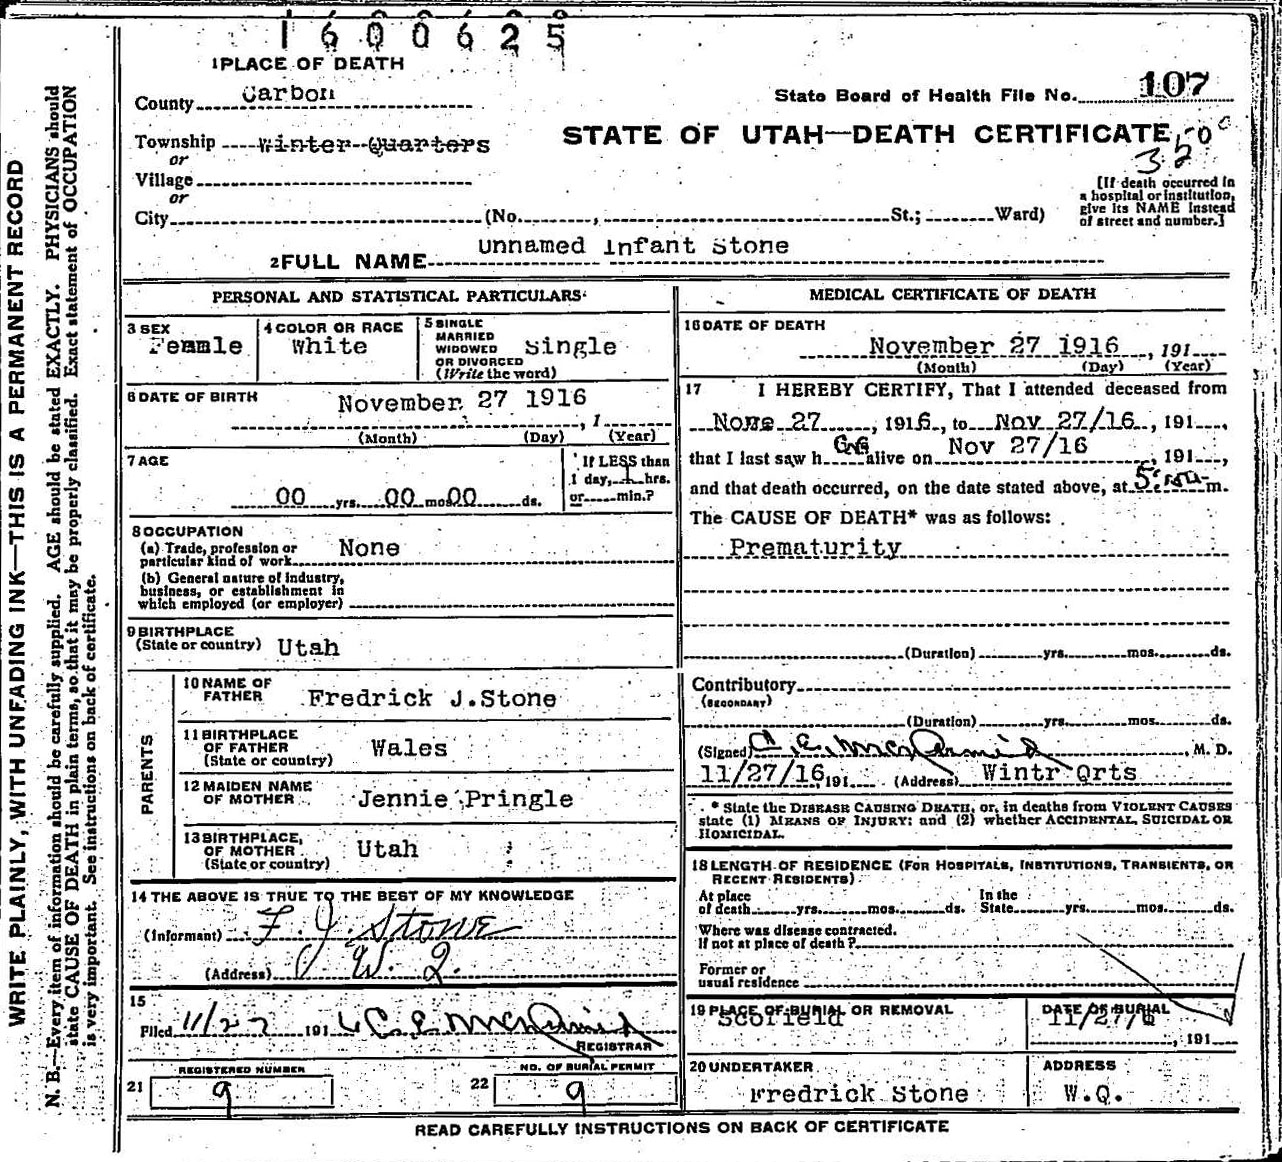 1600625
1 PLACE OF DEATH
County Carbon
State Board of Health File No. 107
Township Winter Quarters
or
STATE OF UTAH—DEATH CERTIFICATE
350
Village
or
City (No. , St.; Ward)
[If death occurred in
a hospital or institution,
give its NAME instead
of street and number.]
2 FULL NAME Unnamed Infant Stone
PERSONAL AND STATISTICAL PARTICULARS
3 SEX
Female
4 COLOR OR RACE
White
5 SINGLE
MARRIED
WIDOWED
OR DIVORCED
(Write the word)
Single
6 DATE OF BIRTH
November 27 1916 , 1
(Month) (Day) (Year)
7 AGE
00 yrs. 00 mos 00 ds.
If LESS than
1 day, 1 hrs.
or min.?
8 OCCUPATION
(a) Trade, profession or
particular kind of work None
(b) General nature of industry,
business, or establishment in
which employed (or employer)
9 BIRTHPLACE
(State or country) Utah
PARENTS
10 NAME OF
FATHER Fredrick J.Stone
11 BIRTHPLACE
OF FATHER
(State or country) Wales
12 MAIDEN NAME
OF MOTHER Jennie Pringle
13 BIRTHPLACE
OF MOTHER
(State or country) Utah
14 THE ABOVE IS TRUE TO THE BEST OF MY KNOWLEDGE
(Informant) F. J. Stone
(Address) W. Q.
15
Filed 11/27 191 6 C. E. McDermid
REGISTRAR
REGISTERED NUMBER
21 9
NO. OF BURIAL PERMIT
22 9
MEDICAL CERTIFICATE OF DEATH
16 DATE OF DEATH
November 27 1916 , 191
(Month) (Day) (Year)
17 I HEREBY CERTIFY, That I attended deceased from
27 , 1916, to Nov 27/16 , 191 ,
that I last saw h alive on Nov 27/16 , 191 ,
and that death occurred, on the date stated above, at m.
The CAUSE OF DEATH* was as follows:
Prematurity
(Duration) yrs. mos. ds.
Contributory
(SECONDARY)
(Duration) yrs. mos. ds.
(Signed) C. E. McDermid , M. D.
11/27/16 , 191 (Address) Wintr Qrts
* State the DISEASE CAUSING DEATH, or, in deaths from VIOLENT CAUSES
state (1) MEANS OF INJURY; and (2) whether ACCIDENTAL, SUICIDAL OR
HOMICIDAL.
18 LENGTH OF RESIDENCE (FOR HOSPITALS, INSTITUTIONS, TRANSIENTS, OR
RECENT RESIDENTS)
At place
of death yrs. mos. ds.
In the
State yrs. mos. ds.
Where was disease contracted.
If not at place of death?
Former or
usual residence
19 PLACE OF BURIAL OR REMOVAL
Scofield
DATE OF BURIAL
11/27/6
, 191
20 UNDERTAKER
Fredrick Stone
ADDRESS
W.Q.
READ CAREFULLY INSTRUCTIONS ON BACK OF CERTIFICATE
WRITE PLAINLY, WITH UNFADING INK—THIS IS A PERMANENT RECORD
N. B.—Every item of information should be carefully supplied. AGE should be stated EXACTLY. PHYSICIANS should
state CAUSE OF DEATH in plain terms, so that it may be properly classified. Exact statement of OCCUPATION
is very important. See instructions on back of certificate.